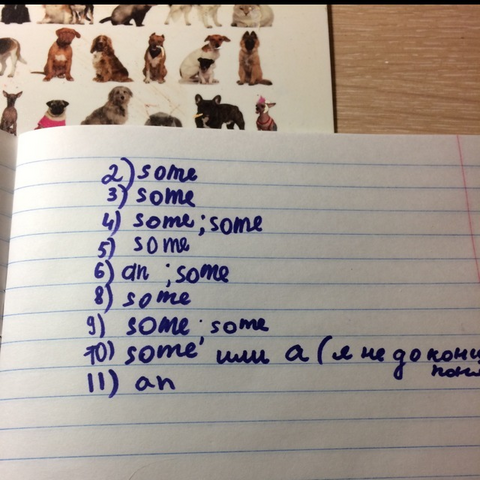 2) some
3) some
4) some; some
5) some
6) an ; some
8) some
9) some; some
10) some или a (я не до конц
11) an